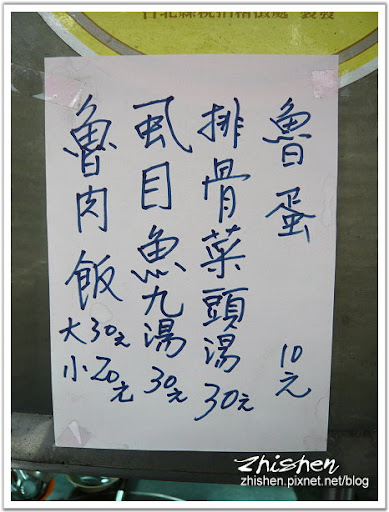 台北縣稅捐稽徵處 製發
魯蛋 10元
排骨菜頭湯 30元
虱目魚九湯 30元
魯肉飯 大30元
小20元
zhishen
zhishen.pixnet.net/blog